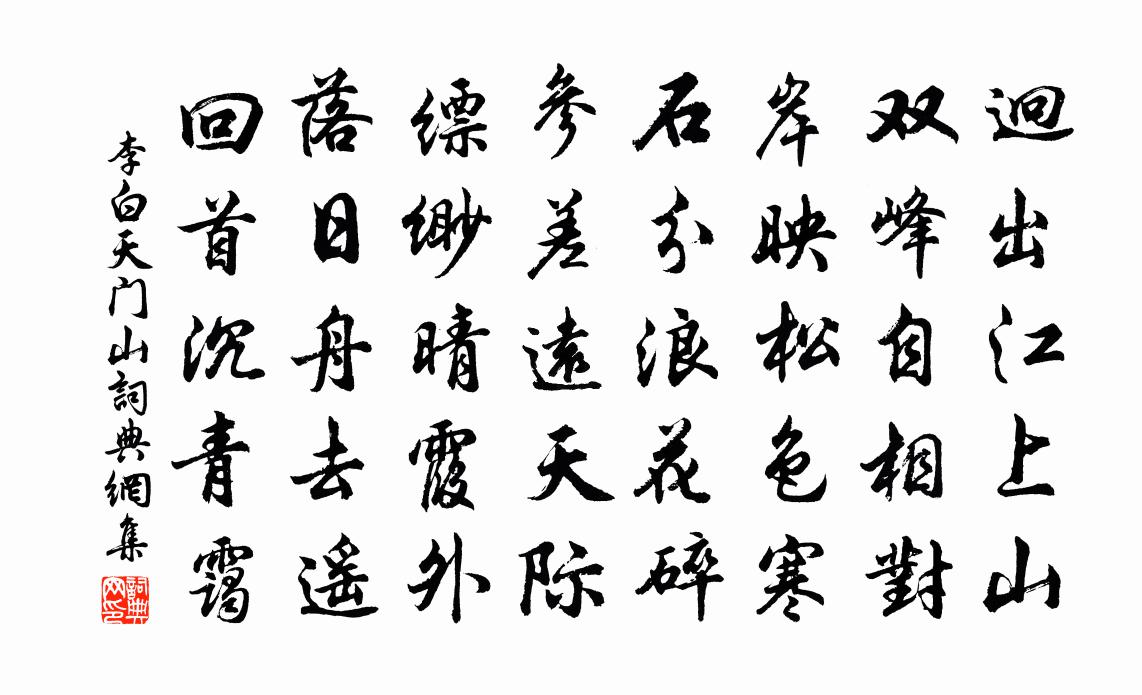 迥出江上山
双峰自相對
岸映松色寒
石分浪花碎
參差遠天际
缥緲晴霞外
落日舟去遥
回首沉青靄
李白天门山詞典網集
詞典网印